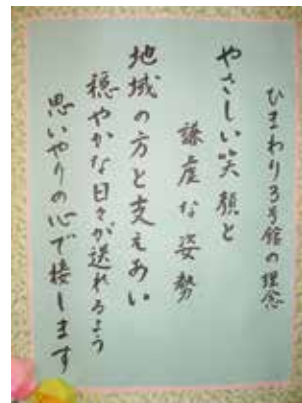 ひまわり3号館の理念
やさしい笑顔と
謙虚な姿勢
地域の方と支えあい
穏やかな日々が送れるよう
思いやりの心で接します